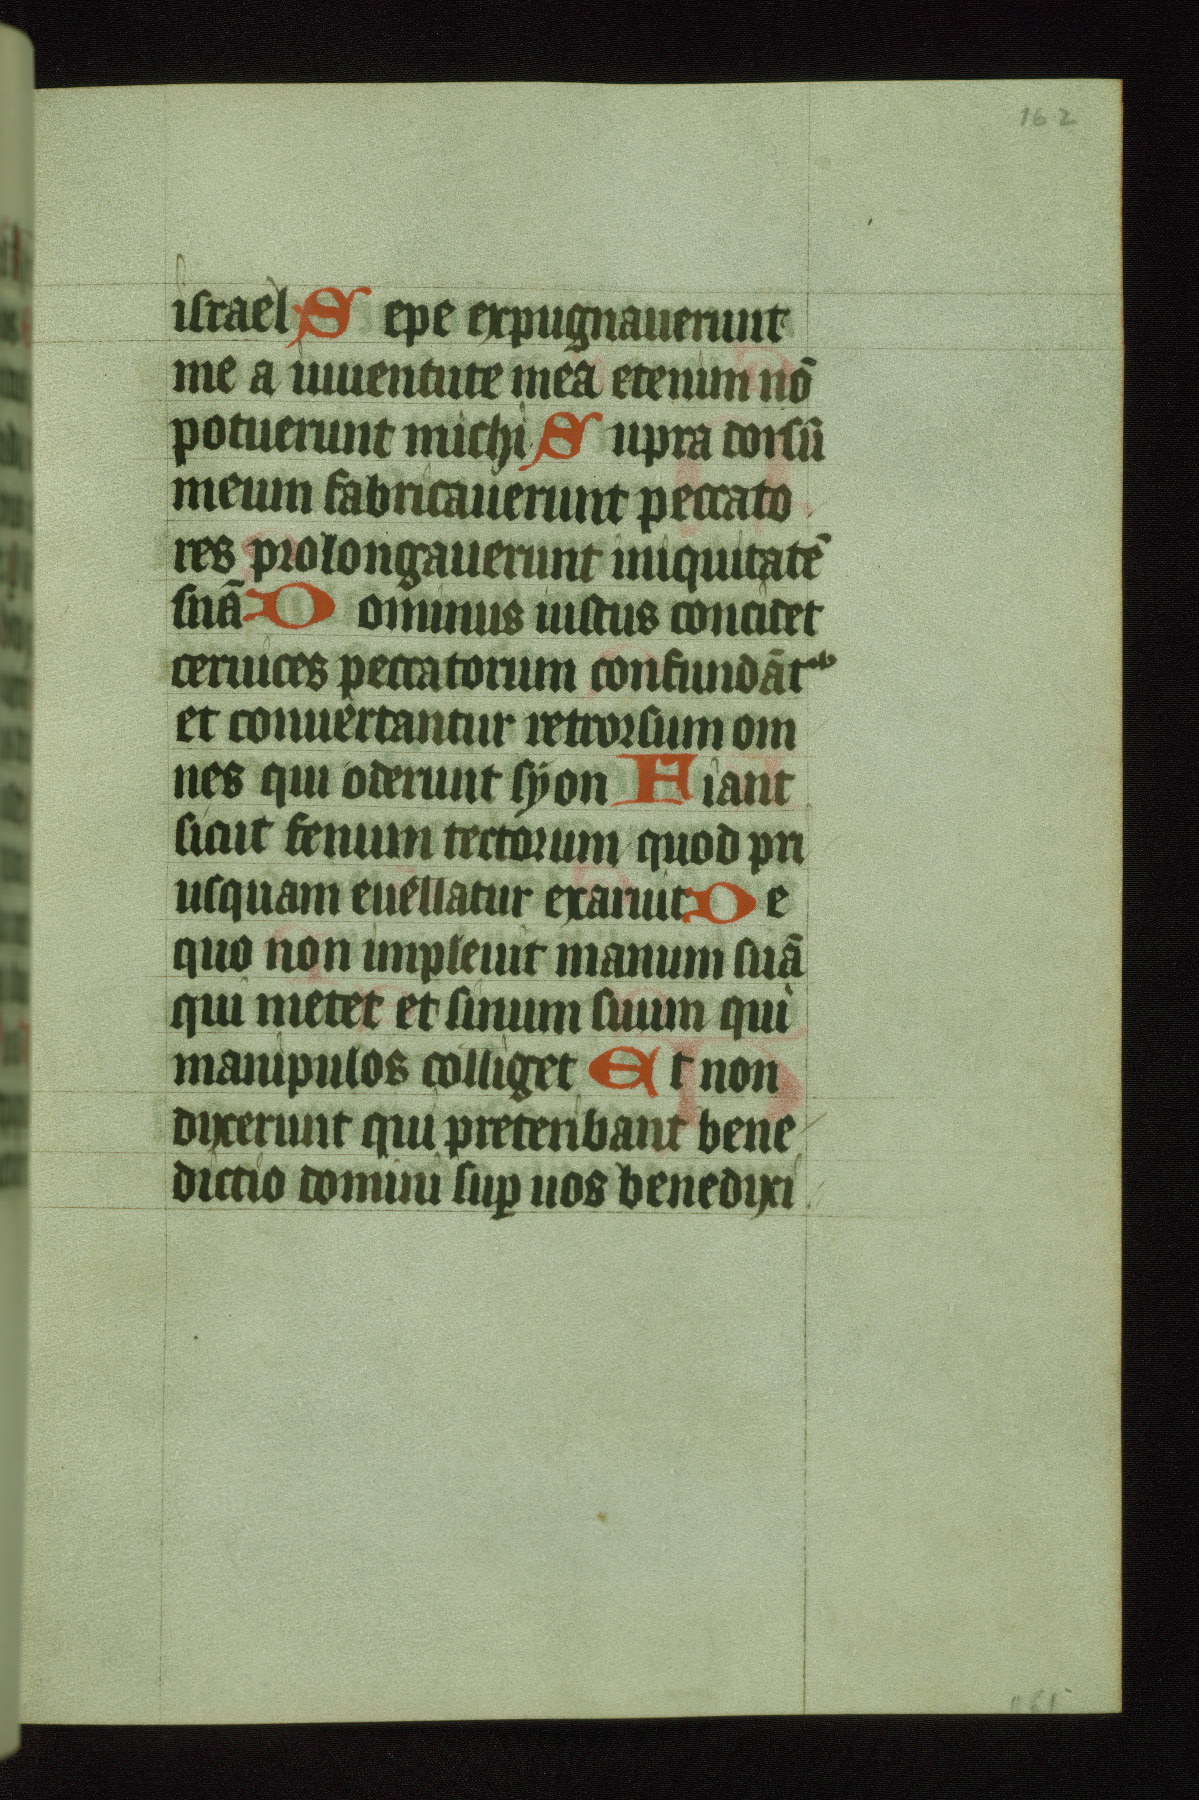 162
israel Sepe expugnauerunt
me a iuuentute mea etenim nō
potuerunt michi Supra dorsū
meum fabricauerunt peccato
res prolongauerunt iniquitatē
suā Dominus iustus concidet
ceruices peccatorum confundāt᷑
et conuertantur retrorsum om
nes qui oderunt syon Fiant
sicut fenum tectorum quod pri
usquam euellatur exaruit De
quo non impleuit manum suā
qui metet et sinum suum qui
manipulos colliget Et non
dixerunt qui preteribant bene
dictio domini suꝑ uos benedixi